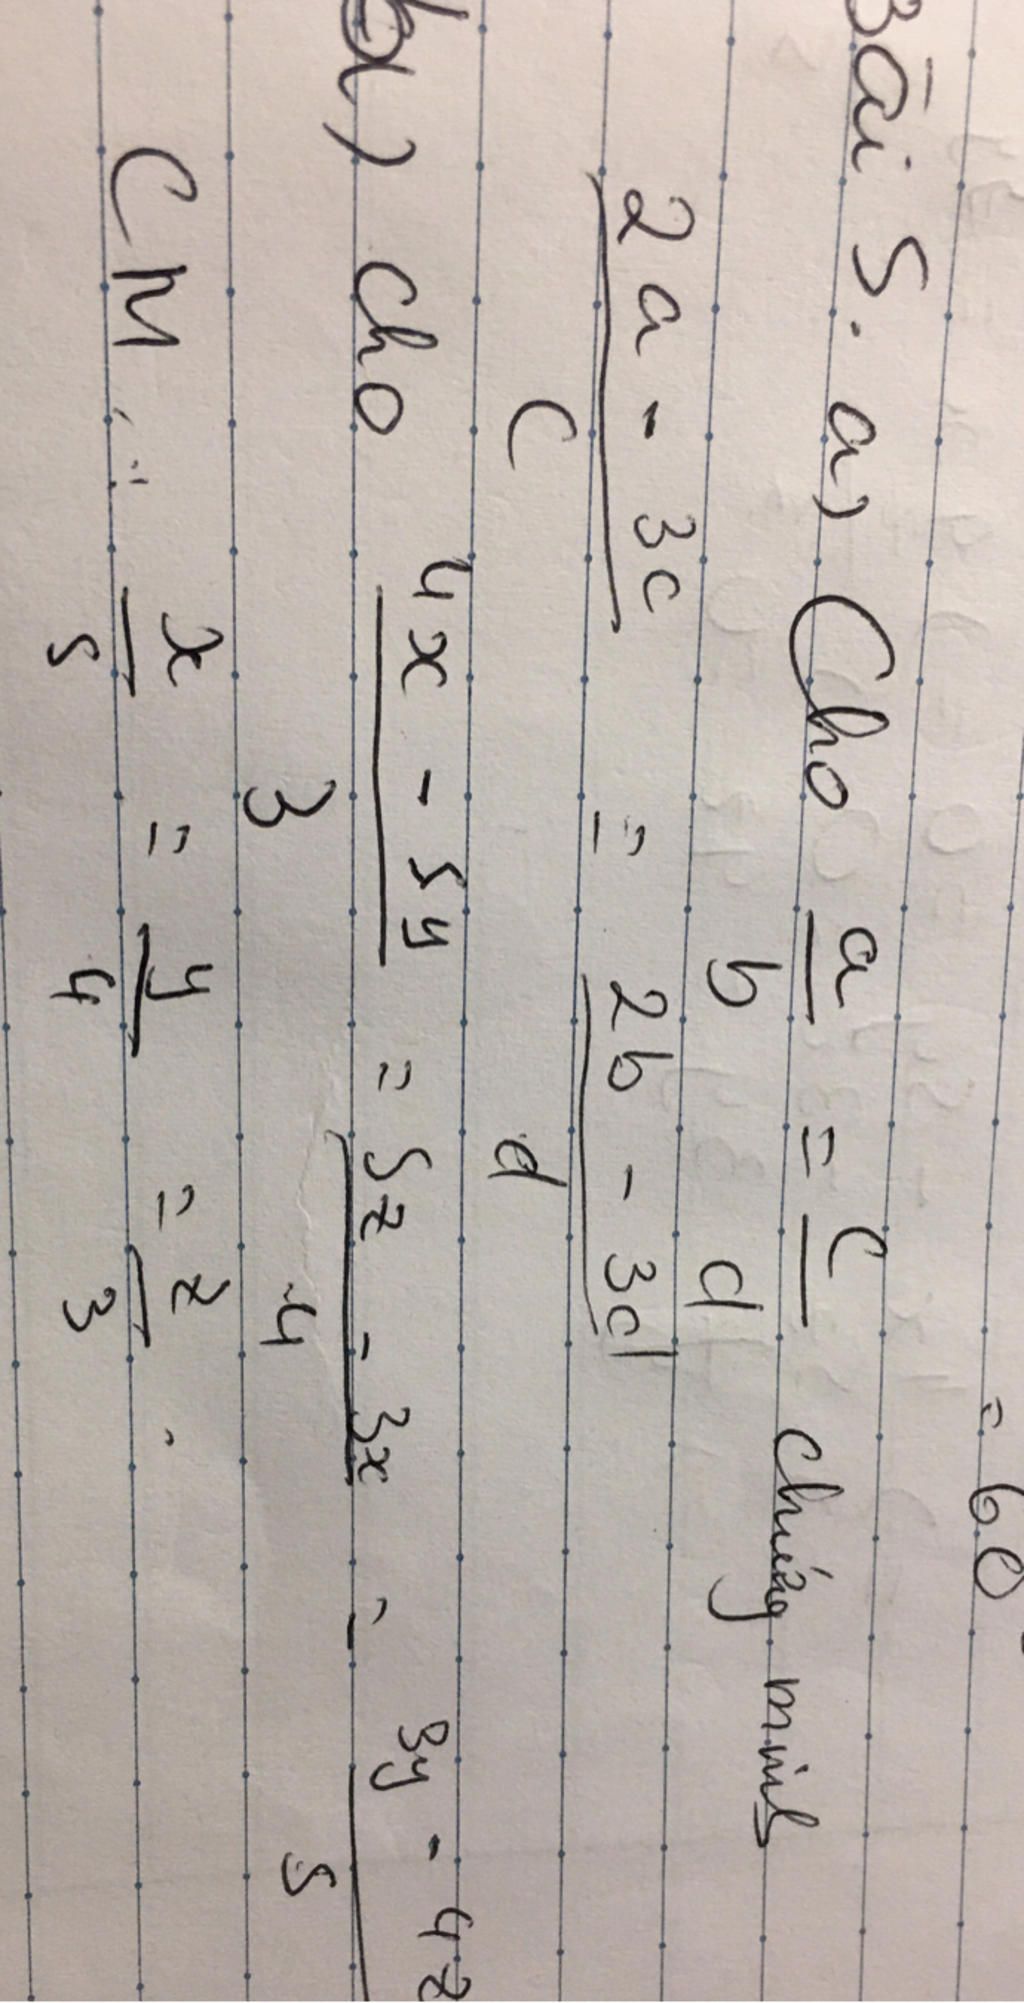 = 60
Bài 5. a) Cho a/b = c/d chứng minh
2a - 3c / c = 2b - 3d / d
b) Cho 4x - 5y / 3 = 5z - 3x / 4 = 3y - 4z / 5
CM : x/5 = y/4 = z/3 .